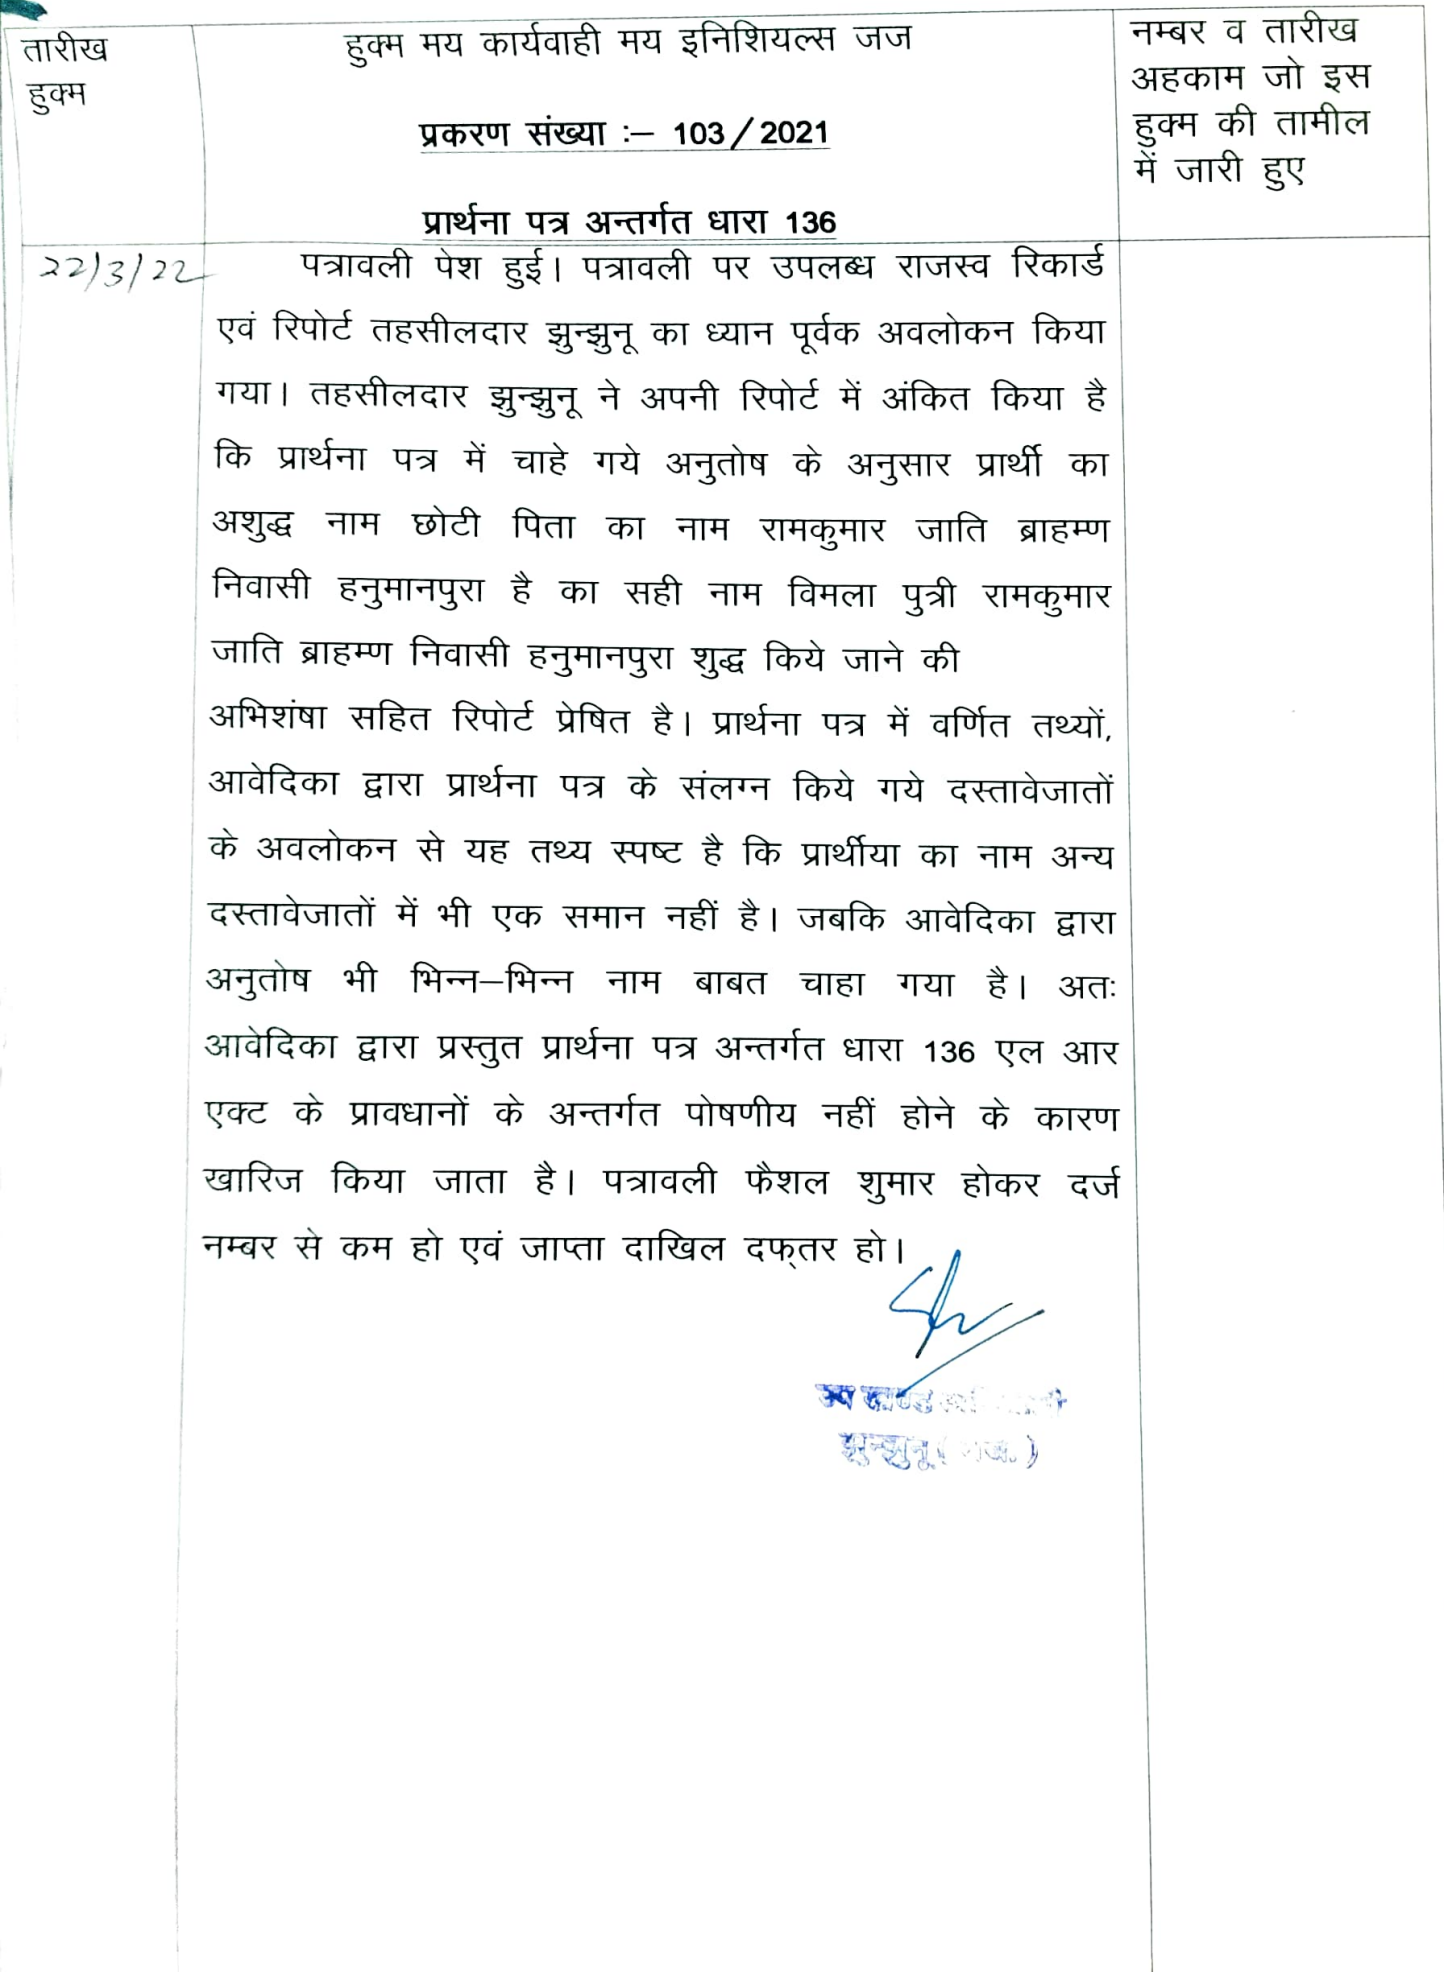 तारीख
हुक्म
हुक्म मय कार्यवाही मय इनिशियल्स जज
प्रकरण संख्या :– 103/2021
प्रार्थना पत्र अन्तर्गत धारा 136
नम्बर व तारीख
अहकाम जो इस
हुक्म की तामील
में जारी हुए
22/3/22
पत्रावली पेश हुई। पत्रावली पर उपलब्ध राजस्व रिकार्ड
एवं रिपोर्ट तहसीलदार झुन्झुनू का ध्यान पूर्वक अवलोकन किया
गया। तहसीलदार झुन्झुनू ने अपनी रिपोर्ट में अंकित किया है
कि प्रार्थना पत्र में चाहे गये अनुतोष के अनुसार प्रार्थी का
अशुद्ध नाम छोटी पिता का नाम रामकुमार जाति ब्राहम्ण
निवासी हनुमानपुरा है का सही नाम विमला पुत्री रामकुमार
जाति ब्राहम्ण निवासी हनुमानपुरा शुद्ध किये जाने की
अभिशंषा सहित रिपोर्ट प्रेषित है। प्रार्थना पत्र में वर्णित तथ्यों,
आवेदिका द्वारा प्रार्थना पत्र के संलग्न किये गये दस्तावेजातों
के अवलोकन से यह तथ्य स्पष्ट है कि प्रार्थीया का नाम अन्य
दस्तावेजातों में भी एक समान नहीं है। जबकि आवेदिका द्वारा
अनुतोष भी भिन्न–भिन्न नाम बाबत चाहा गया है। अतः
आवेदिका द्वारा प्रस्तुत प्रार्थना पत्र अन्तर्गत धारा 136 एल आर
एक्ट के प्रावधानों के अन्तर्गत पोषणीय नहीं होने के कारण
खारिज किया जाता है। पत्रावली फैशल शुमार होकर दर्ज
नम्बर से कम हो एवं जाप्ता दाखिल दफ्तर हो।
उप खण्ड
झुन्झुनू